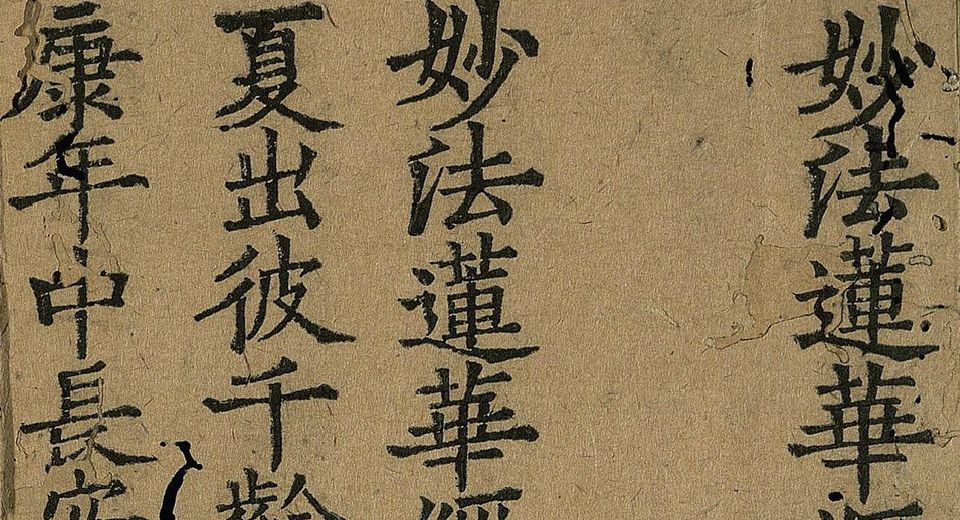 妙法蓮華
妙法蓮華經
夏出彼千齡
康年中長安